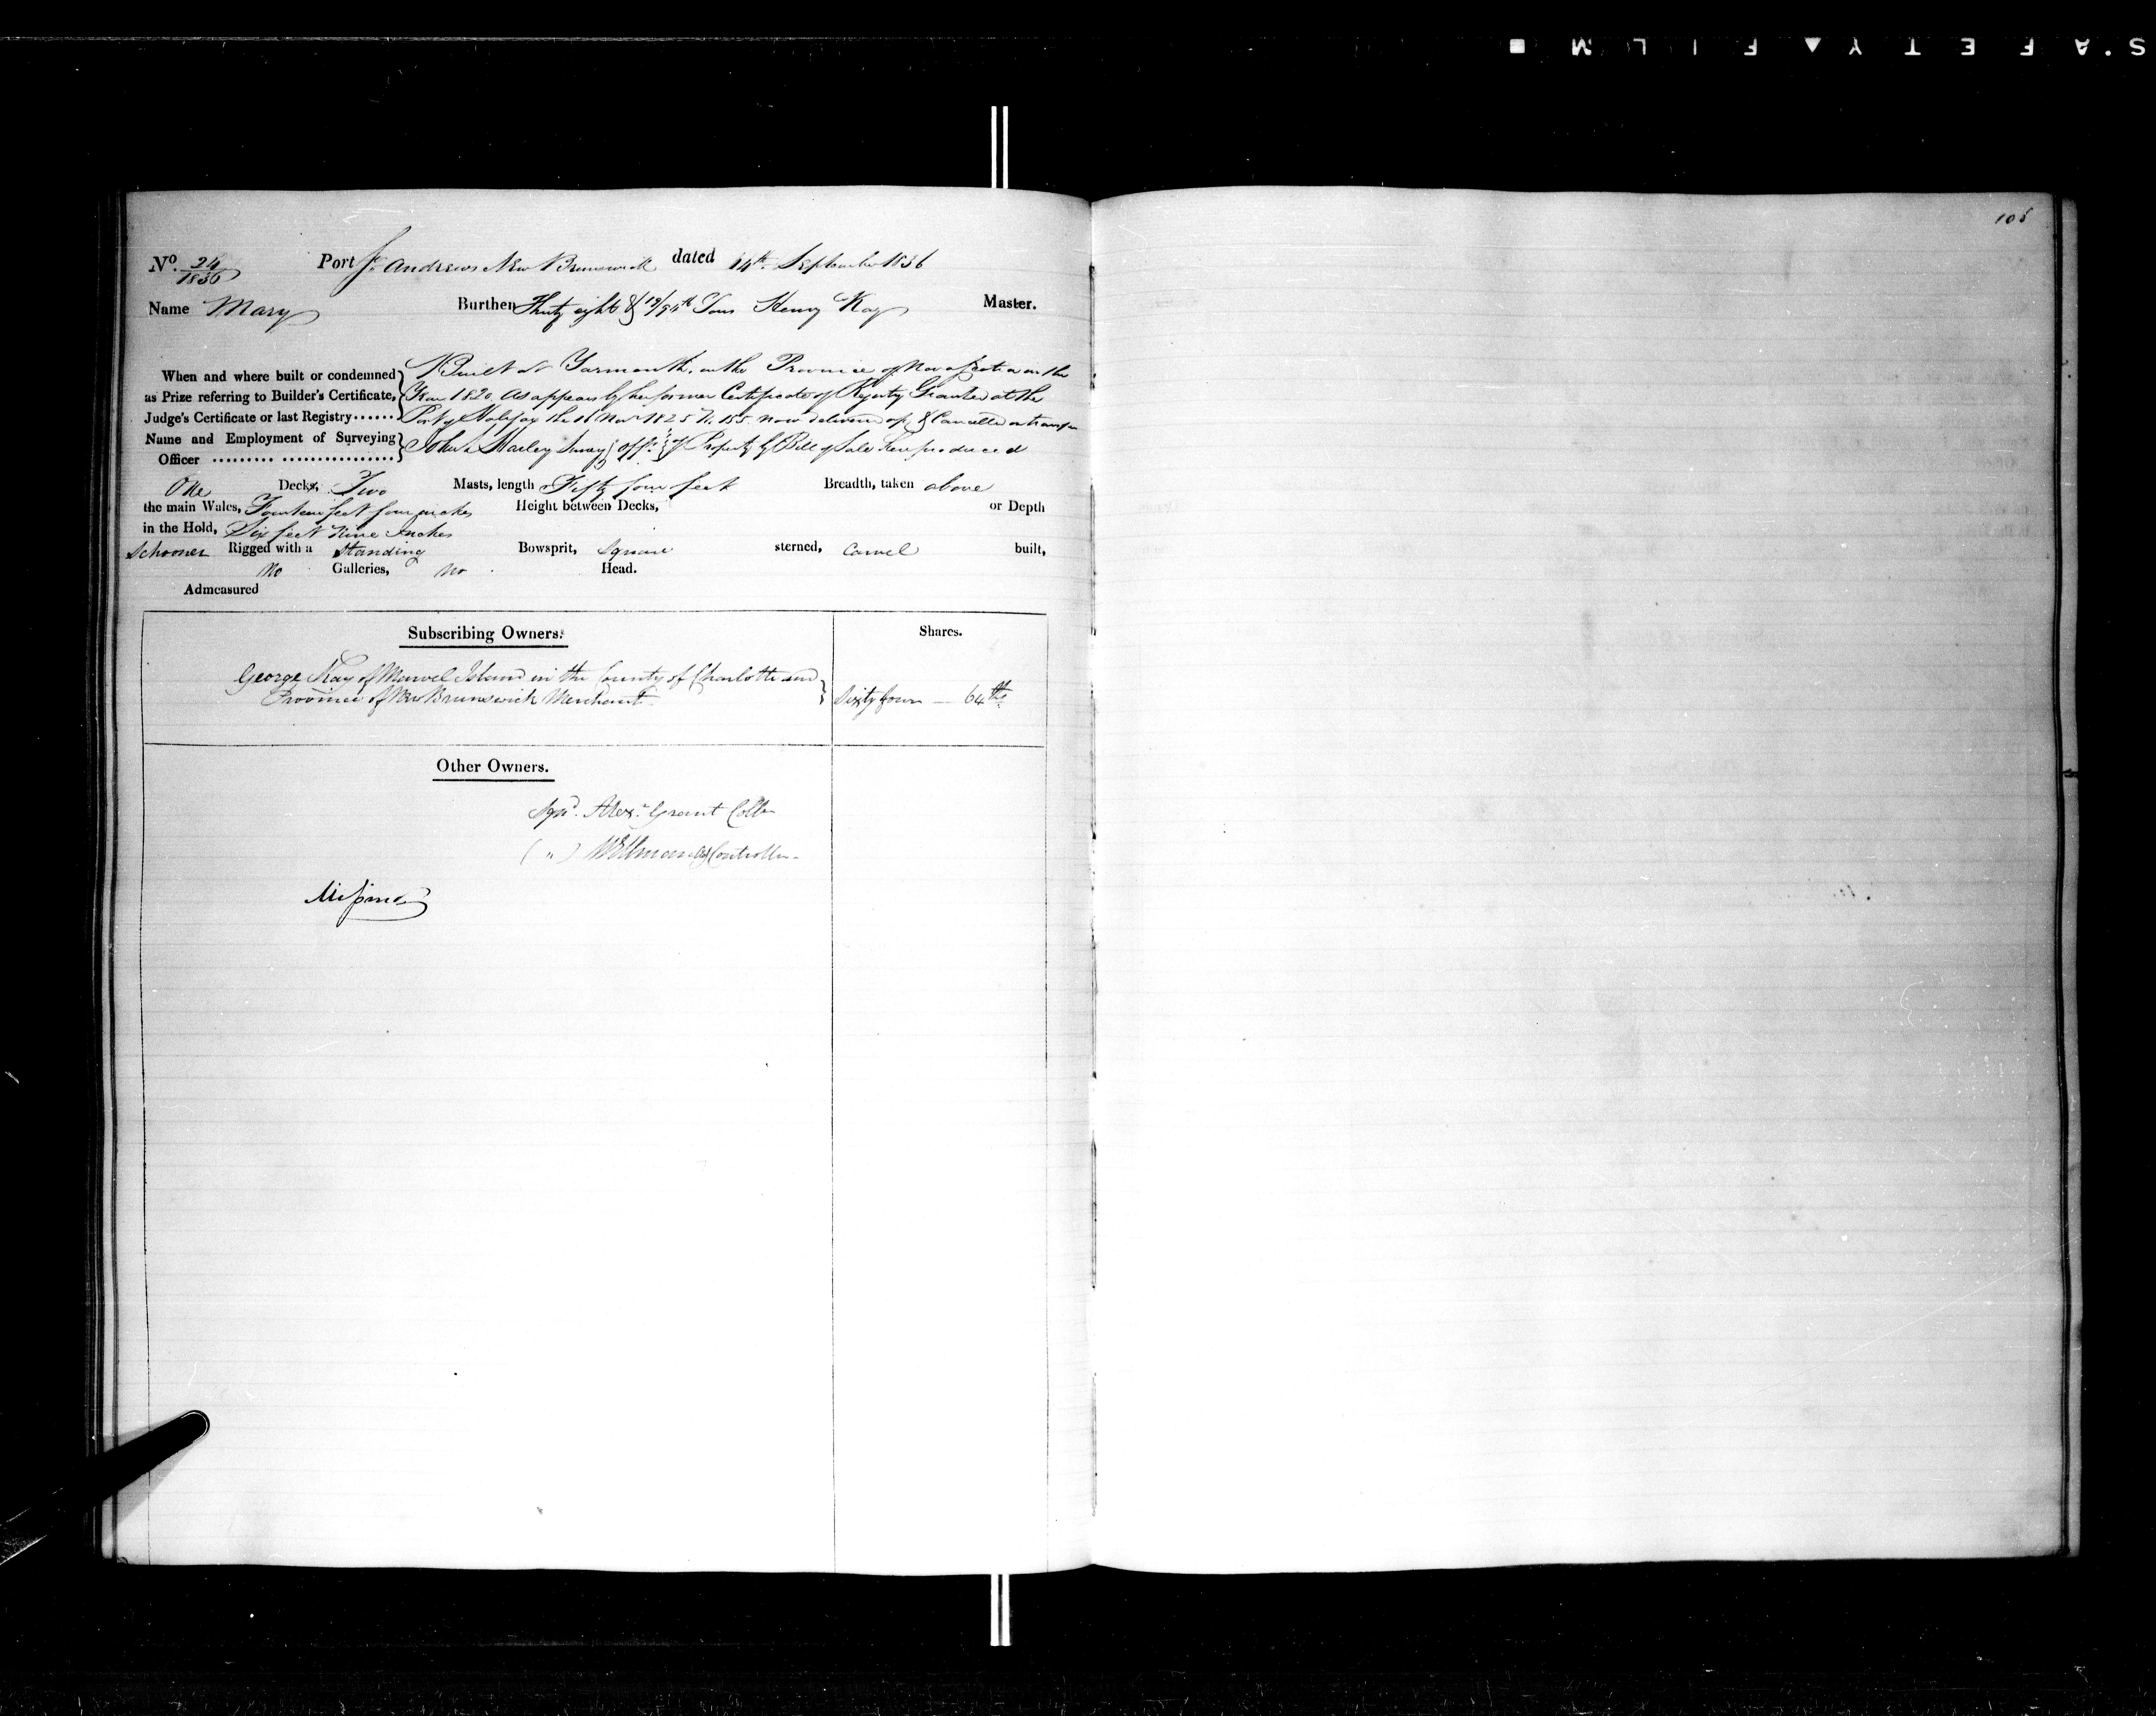 SAFETY FILM
105
No. 24/1836 Port St. Andrews New Brunswick dated 14th September 1836
Name Mary Burthen Thirty eight & 19/94th Tons Henry Kay Master.
When and where built or condemned as Prize referring to Builder's Certificate, Judge's Certificate or last Registry......
Built at Yarmouth in the Province of Nova Scotia in the
Year 1820. As appears by her former Certificate of Registry Granted at the
Port of Halifax the 11 Novr 1825 No. 155 now delivered up & Cancelled on transfer
Name and Employment of Surveying Officer ......... ................
John Marley Survg Offr of Property by Bill of Sale here produced
One Decks, Two Masts, length Fifty four feet Breadth, taken above
the main Wales, Fourteen feet four inches Height between Decks, or Depth
in the Hold, Six feet Nine Inches
Schooner Rigged with a Standing Bowsprit, Square sterned, Carvel built,
No Galleries, No Head.
Admeasured
Subscribing Owners. Shares.
George Kay of Island in the County of Charlotte and
Province of New Brunswick Merchant Sixty four — 64ths
Other Owners.
Sgnd. Alexr. Grant Collr
( " ) Controller